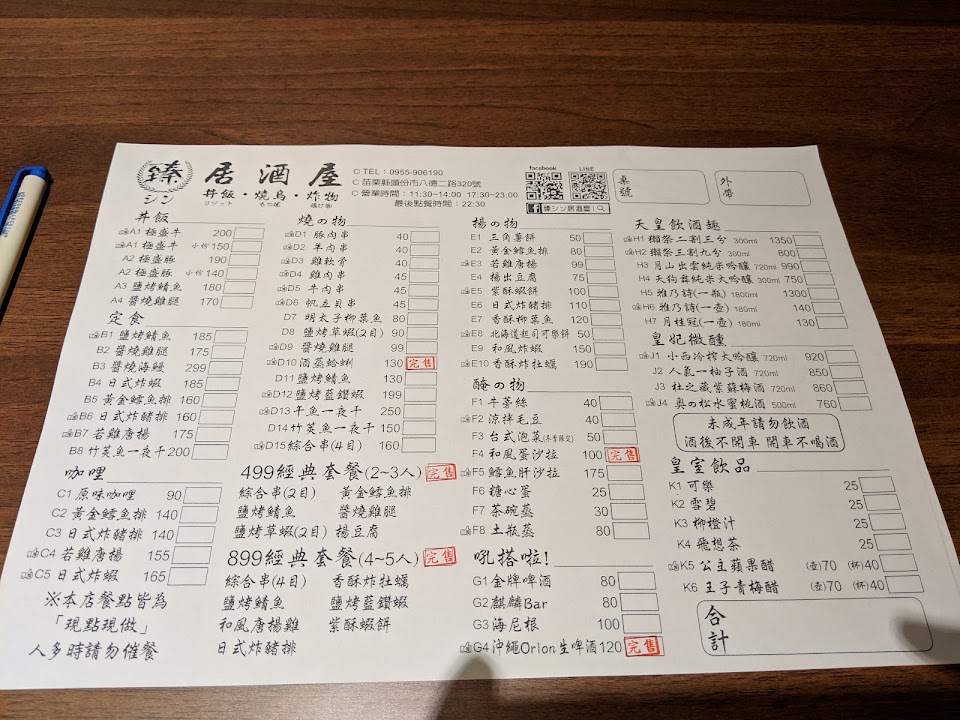 臻 居酒屋
シン 丼飯・燒鳥・炸物
TEL：0955-906190
苗栗縣頭份市八德二路320號
營業時間：11:30~14:00 17:30~23:00
最後點餐時間：22:30
facebook LINE
臻シン居酒屋
桌號
外帶
丼飯
A1 極盛牛 200
A1 極盛牛 小份 150
A2 極盛豚 190
A2 極盛豚 小份 140
A3 鹽燒鯖魚 180
A4 醬燒雞腿 170
定食
B1 鹽烤鯖魚 185
B2 醬燒雞腿 175
B3 醬燒海鰻 299
B4 日式炸蝦 185
B5 黃金鱈魚排 160
B6 日式炸豬排 160
B7 若雞唐揚 175
B8 竹筴魚一夜干 200
咖哩
C1 原味咖哩 90
C2 黃金鱈魚排 140
C3 日式炸豬排 140
C4 若雞唐揚 155
C5 日式炸蝦 165
※本店餐點皆為
「現點現做」
人多時請勿催餐
燒の物
D1 豚肉串 40
D2 羊肉串 40
D3 雞軟骨 40
D4 雞肉串 45
D5 牛肉串 45
D6 帆立貝串 45
D7 明太子柳葉魚 80
D8 鹽烤草蝦(2目) 90
D9 醬燒雞腿 99
D10 酒蒸蛤蜊 130 完售
D11 鹽烤鯖魚 130
D12 鹽烤藍鑽蝦 199
D13 午魚一夜干 250
D14 竹筴魚一夜干 150
D15 綜合串(4目) 160
499經典套餐(2~3人) 完售
綜合串(2目) 黃金鱈魚排
鹽燒鯖魚 醬燒雞腿
鹽烤草蝦(2目) 揚豆腐
899經典套餐(4~5人) 完售
綜合串(4目) 香酥炸牡蠣
鹽烤鯖魚 鹽烤藍鑽蝦
和風唐揚雞 紫酥蝦餅
日式炸豬排
揚の物
E1 三角薯餅 50
E2 黃金鱈魚排 80
E3 若雞唐揚 99
E4 揚出豆腐 75
E5 紫酥蝦餅 100
E6 日式炸豬排 110
E7 香酥柳葉魚 120
E8 北海道起司可樂餅 50
E9 和風炸蝦 150
E10 香酥炸牡蠣 190
醃の物
F1 牛蒡絲 40
F2 涼拌毛豆 40
F3 台式泡菜(冬季限定) 50
F4 和風蛋沙拉 100 完售
F5 鱈魚肝沙拉 175
F6 糖心蛋 25
F7 茶碗蒸 30
F8 土瓶蒸 80
吼搭啦!
G1 金牌啤酒 80
G2 麒麟Bar 80
G3 海尼根 100
G4 沖繩Orion生啤酒 120 完售
天皇飲酒趣
H1 獺祭二割三分 300ml 1350
H2 獺祭三割九分 300ml 800
H3 月山出雲純米吟釀 720ml 990
H4 天狗舞純米大吟釀 300ml 750
H5 雅乃詩(一瓶) 1800ml 1300
H6 雅乃詩(一壺) 180ml 140
H7 月桂冠(一壺) 180ml 130
皇妃微醺
J1 小西冷榨大吟釀 720ml 920
J2 人氣一柚子酒 720ml 850
J3 杜之藏紫蘇梅酒 720ml 860
J4 奥の松水蜜桃酒 500ml 760
未成年請勿飲酒
酒後不開車 開車不喝酒
皇室飲品
K1 可樂 25
K2 雪碧 25
K3 柳橙汁 25
K4 飛想茶 25
K5 公主蘋果醋 (壺)70 (杯)40
K6 王子青梅醋 (壺)70 (杯)40
合計